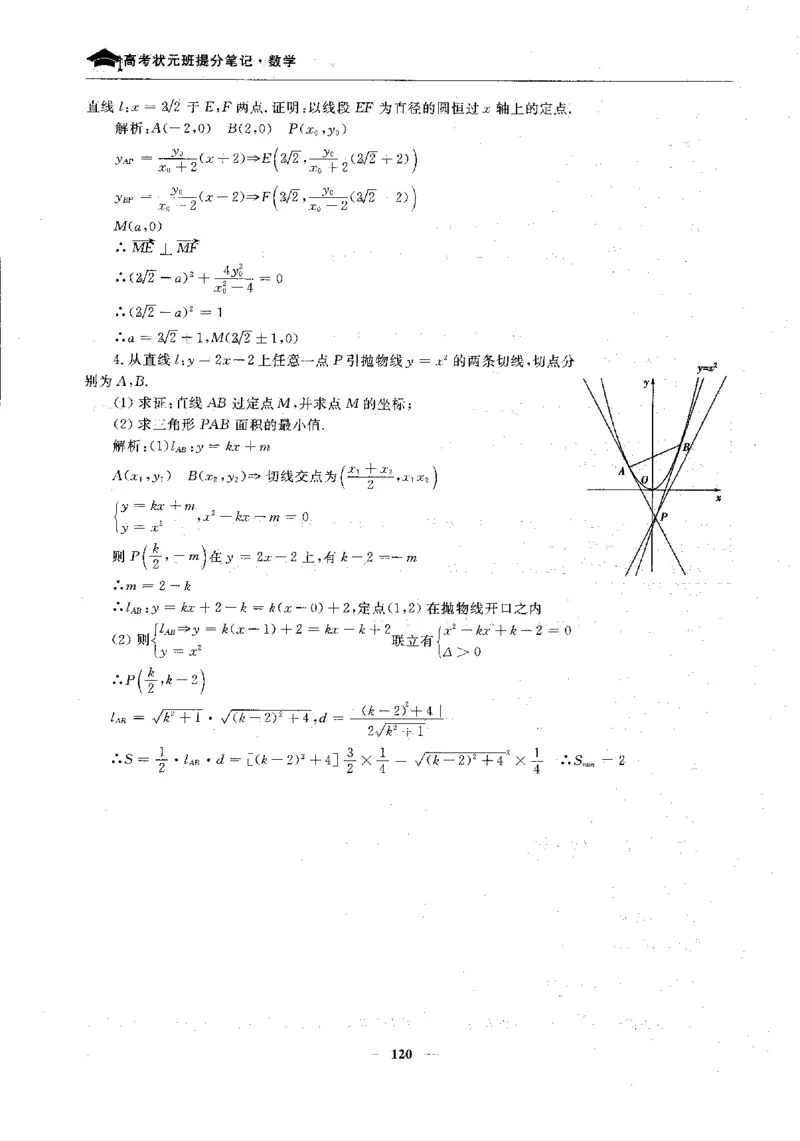 高考状元班提分笔记·数学
直线 l:x = 2√2 于 E,F 两点.证明:以线段 EF 为直径的圆恒过 x 轴上的定点.
解析:A(−2,0) B(2,0) P(x₀,y₀)
y_AP = y₀/(x₀+2) (x+2)⇒E(2√2, y₀/(x₀+2) · (2√2+2))
y_BP = y₀/(x₀−2) (x−2)⇒F(2√2, y₀/(x₀−2) (2√2−2))
M(a,0)
∴ ME ⊥ MF
∴(2√2−a)² + 4y₀²/(x₀²−4) = 0
∴(2√2−a)² = 1
∴a = 2√2±1,M(2√2±1,0)
4.从直线 l:y = 2x−2上任意一点 P 引抛物线 y = x² 的两条切线,切点分
别为 A,B.
(1) 求证:直线 AB 过定点 M,并求点 M 的坐标;
(2) 求三角形 PAB 面积的最小值.
解析:(1)l_AB:y = kx+m
A(x₁,y₁) B(x₂,y₂)⇒ 切线交点为((x₁+x₂)/2,x₁x₂)
{y = kx+m
y = x² ,x²−kx−m = 0
则 P(k/2,−m)在 y = 2x−2上,有 k−2 = −m
∴m = 2−k
∴l_AB:y = kx+2−k = k(x−0)+2,定点(1,2)在抛物线开口之内
(2) 则{l_AB⇒y = k(x−1)+2 = kx−k+2
y = x² 联立有{x²−kx+k−2 = 0
Δ>0
∴P(k/2,k−2)
l_AB = √(k²+1) · √((k−2)²+4),d = |(k−2)²+4|/(2√(k²+1))
∴S = 1/2 · l_AB · d = [(k−2)²+4]^(3/2) × 1/4 = √((k−2)²+4)³ × 1/4 ∴S_min = 2
y=x²
y
B
A
O
x
P
120